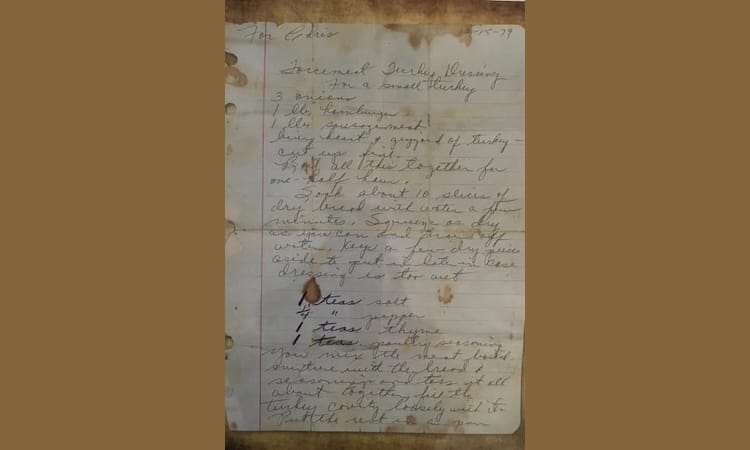 For Chris
-15-79
Forcemeat Turkey Dressing
For a small turkey
3 onions
1 lb. hamburger
1 lb. sausage meat
heart & gizzard of turkey -
cut up fine.
Boil all this together for
one-half hour.
Soak about 10 slices of
dry bread with water a few
minutes. Squeeze as dry
as you can and drain off
water. Keep a few dry pieces
aside to put in later in case
dressing is too wet
1 teas salt
1/4 " pepper
1 teas thyme
1 teas. poultry seasoning
You mix the meat boiled
mixture with the bread &
seasonings and toss it all
about together fill the
turkey cavity loosely with it.
Put the rest in a pan